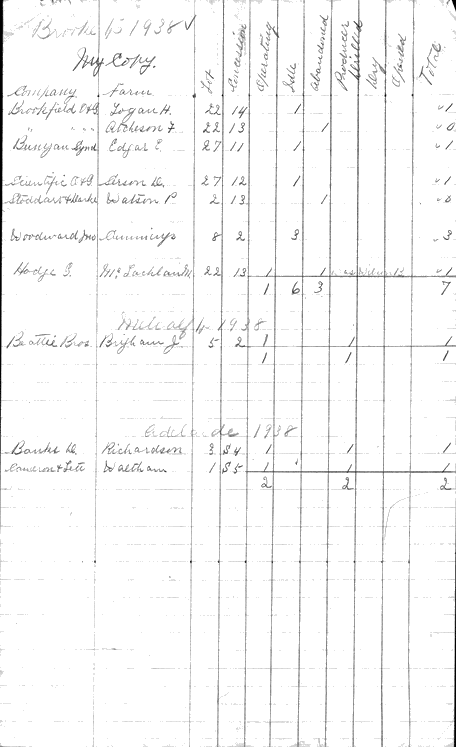 Brooke 1938 ✓
My Copy.
Company Farm Lot Concession Operating Idle Abandoned Producer Drilled Dry Gassed Total
Brookfield O&G Logan H. 22 14 1 1
" " " Atcheson F 22 13 1 0
Bunyan Synd Edgar E. 27 11 1 1
Scientific O&G 27 12 1 1
Stoddart & Watson P 2 13 1 0
Woodward Jno Cummings 8 2 3 3
Hodge G. McLachlan M. 22 13 1 1 was Wilson 1
1 6 3 7
Metcalf 1938
Beattie Bros. Brigham J 5 2 1 1 1
1 1 1
Adelaide 1938
Banks D. Richardson 3 S4 1 1 1
Cameron & Waltham 1 S5 1 1 1
2 2 2